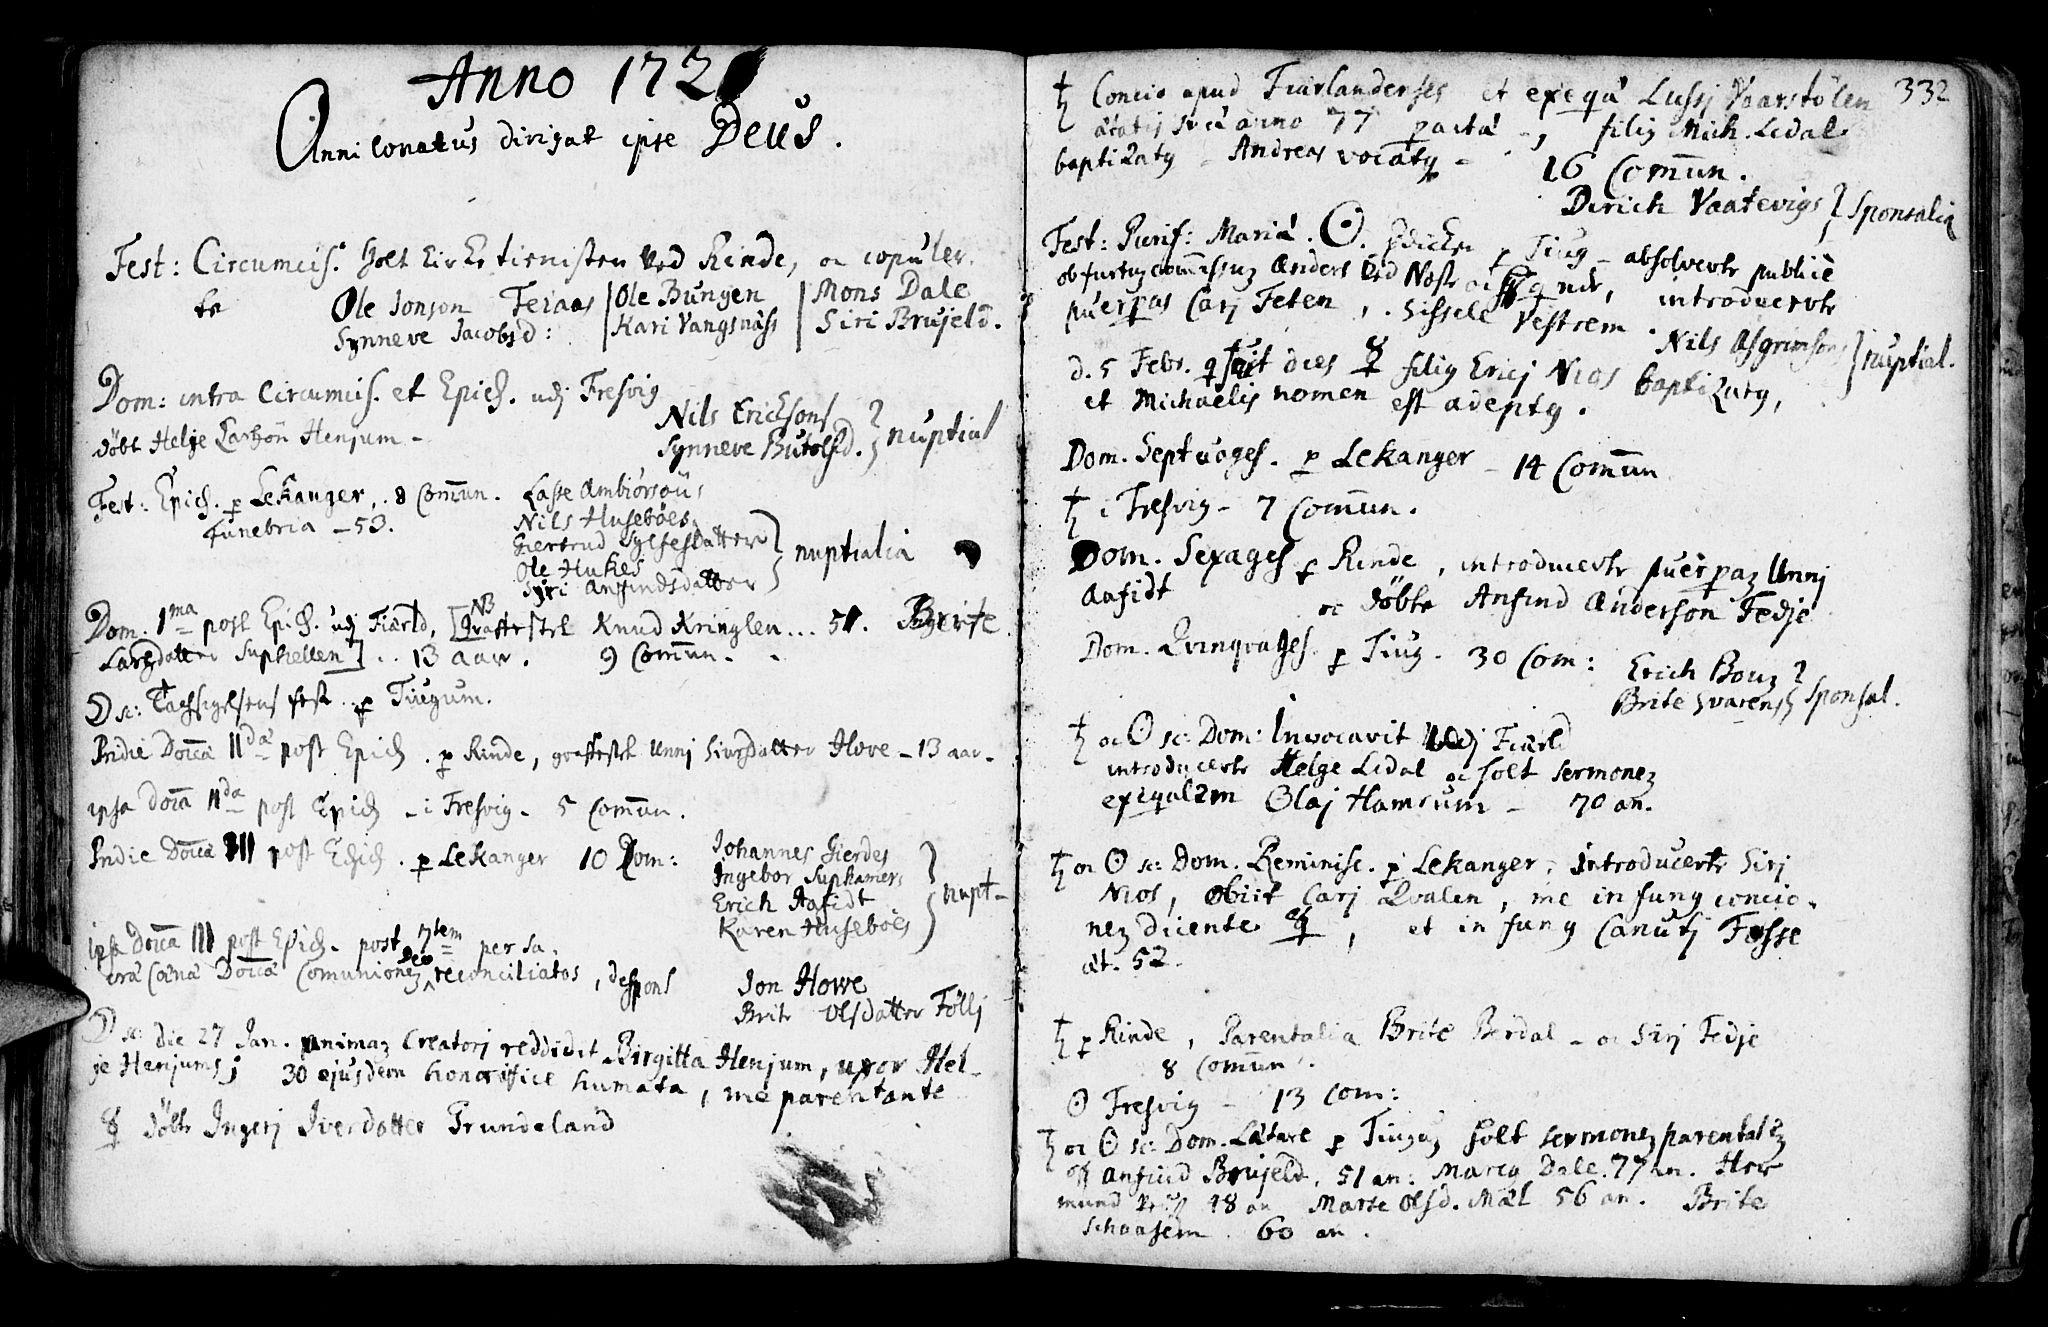 Anno 172
Anni conatus dirigat ipse Deus.
Fest: Circumcis. holt Kirketienisten ved Rinde, oc copuler-
te Ole Jonson Feraas | Ole Bungen | Mons Dale
Synneve Jacobsd: | Kari Vangsnäss | Siri Brujeld.
Dom: intra Circumcis. et Epiph. udj Fresvig
döbt Helje Larsön Henjum -
Nils Ericksons
Synneve Butolfsd. } nuptial
Fest: Epiph. p Lekanger, . 8 Com̄un.
funebria - 53.
Lasse Ambiörsöns
Nils Huseböes
Giertrud Sylfesdatter
Ole Hukes
Syri Anfindsdatter } nuptialia
Dom. 1ma post Epiph. udj Fiärld, [NB graffestet Knud Kringlen ... 51. Berte
Larsdatter Suphellen] .. 13 aar. 9 Com̄un.
D sc: Tachsigelsens fest p Tiugum.
Pridie Do͞ca IIda post Epiph. p Rinde, graffestet Unnj Siursdatter Hove - 13 aar.
ipsa do͞ca IIda post Epiph - i Fresvig - 5 Com̄un.
Pridie Do͞ca III post Epiph. p Lekanger 10 Com:
Johannes Gierdes
Ingebor Suphamers
Erich Aafidt
Karen Huseböes } nupt-
ipsa Do͞ca III post Epiph. post 7tem per sa-
cra Cæna Do͞ca Comunionez Deo reconciliatos, despons
Jon Howe
Brite Olsdatter Föllj
D sc: die 27 Jan. animaz Creatorj reddidit Birgitta Henjum, uxor Hel-
je Henjums; 30 ejusdem honorifice humata, me parentante
☿ döbte Ingerj Iverdatter Grundeland
332
♄ Concio apud Fiärlandenses et exeqä Lussj Vaarstölen
ætatis suæ anno 77 pacta -, filiꝰ Mich. Lidal
baptizatꝰ - Andreas vocatꝰ - 16 Com̄un.
Dirich Vaatevigs } Sponsalia
Fest: Purif: Mariä. ☉. p Tiug - absolvertr publicè
ob furtuz com̄issuz Anders introducertr
puerpas Carj Feten, . Sissele Vestrem .
Nils Asgrimsons } nuptial.
d. 5 Febr. q fuit dies ☿ filiꝰ Ericj Nios baptizatꝰ,
et Michaelis nomen est adeptꝰ.
Dom. Septuages. p Lekanger - 14 Com̄un
♄ i Fresvig - 7 Com̄un.
Dom. Sexages p Rinde, introducertr puerpaz Unnj
Aafidt oc döbte Anfind Anderson Fedje
Dom. Qvinqvages p Tiug. 30 Com:
Erich Bouz
Brite Svarens } Sponsal.
♄ oc ☉ sc: Dom: Invocavit udj Fiärld
introducertr Helge Lidal oc holt sermonez
exeqalem Olaj Hamrum - 70 an.
♄ oc ☉ sc: Dom. Reminisc. p Lekanger, introducertr Sirj
Nios, obiit Carj Qvalen, me in funꝰ concio-
nez dicente ☿, et in funꝰ Canutj Fosse
æt. 52.
♄ p Rinde, Parentalia Brite Berdal - oc Sirj Fedje
8 Com̄un.
☉ Fresvig - 13 Com:
♄ oc ☉ sc: Dom. Lætare p Tiugaz holt sermonez parentalez
Anfind Brujeld. 51 an: Marta Dale. 77 an. Her-
mund 48 an Marte Olsd. Mæl 56 an. Brite
Schaasem. 60 an.